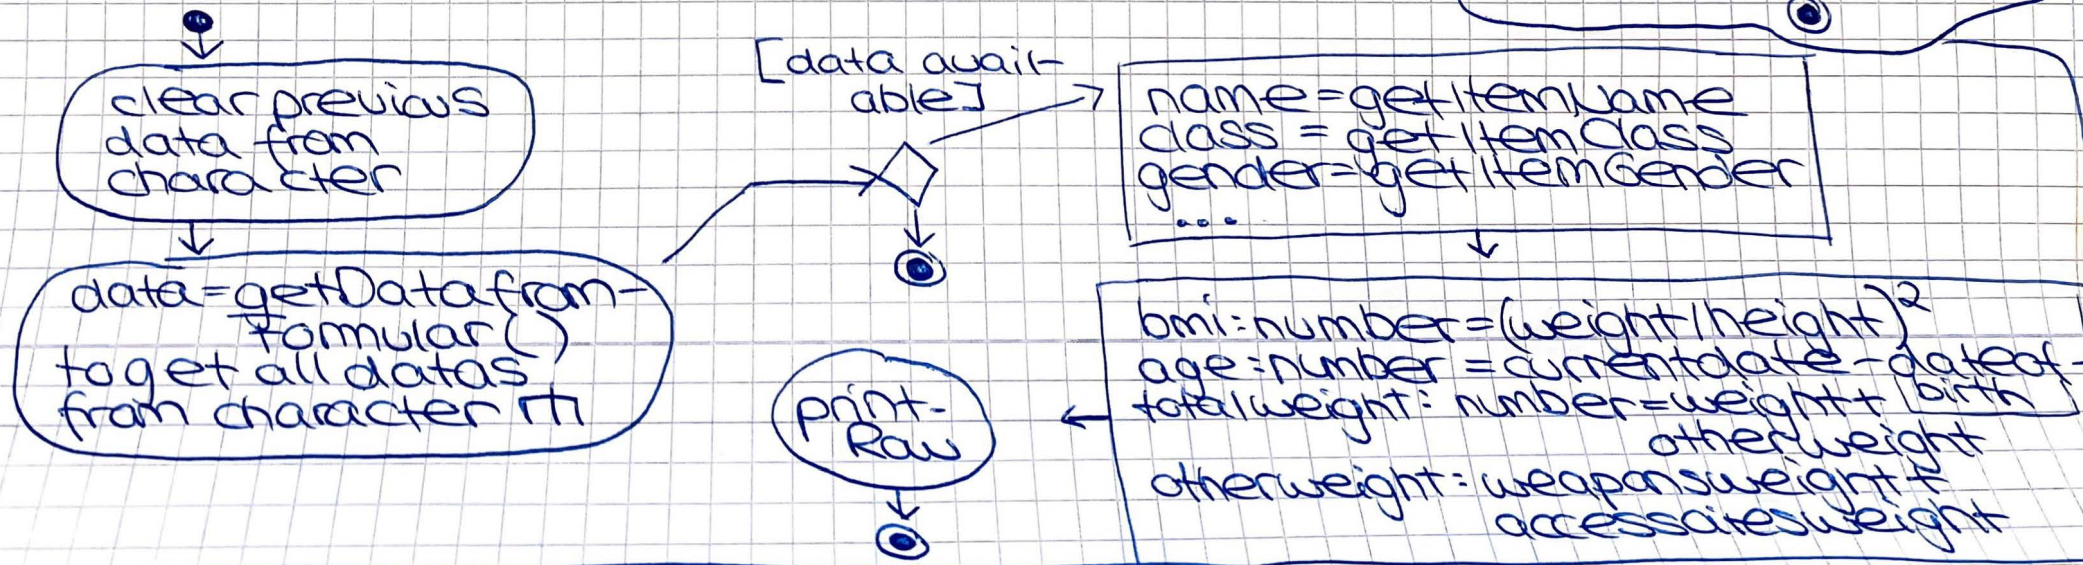 clear previous
data from
character
data=getDatafrom-
formular()
to get all datas
from character
[data avail-
able]
name=getItemName
class = getItemClass
gender=getItemGender
...
bmi:number=(weight/height)²
age:number = currentdate-dateof-
birth
totalweight: number=weight+
otherweight
otherweight: weaponsweight+
accessoiresweight
print-
Raw